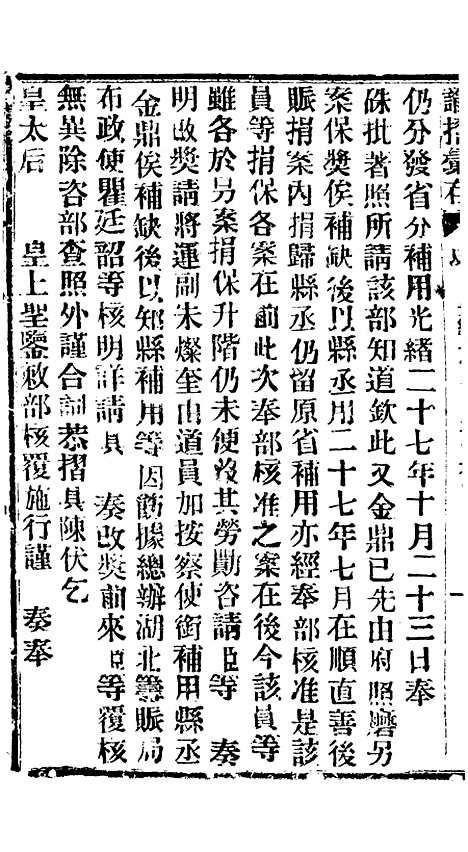 諭摺彙存
仍分發省分補用光緒二十七年十月二十三日奉
硃批著照所請該部知道欽此又金鼎已先由府照磨另
案保獎俟補缺後以縣丞用二十七年七月在順直善後
賑捐案內捐歸縣丞仍留原省補用亦經奉部核准是該
員等捐保各案在前此次奉部核准之案在後今該員等
雖各於另案捐保升階仍未便沒其勞勩咨請臣等 奏
明改獎請將運副朱燦奎由道員加按察使銜補用縣丞
金鼎俟補缺後以知縣補用等因飭據總辦湖北籌賑局
布政使瞿廷韶等核明詳請具 奏改獎前來臣等覆核
無異除咨部查照外謹合詞恭摺具陳伏乞
皇太后 皇上聖鑒敕部核覆施行謹 奏奉